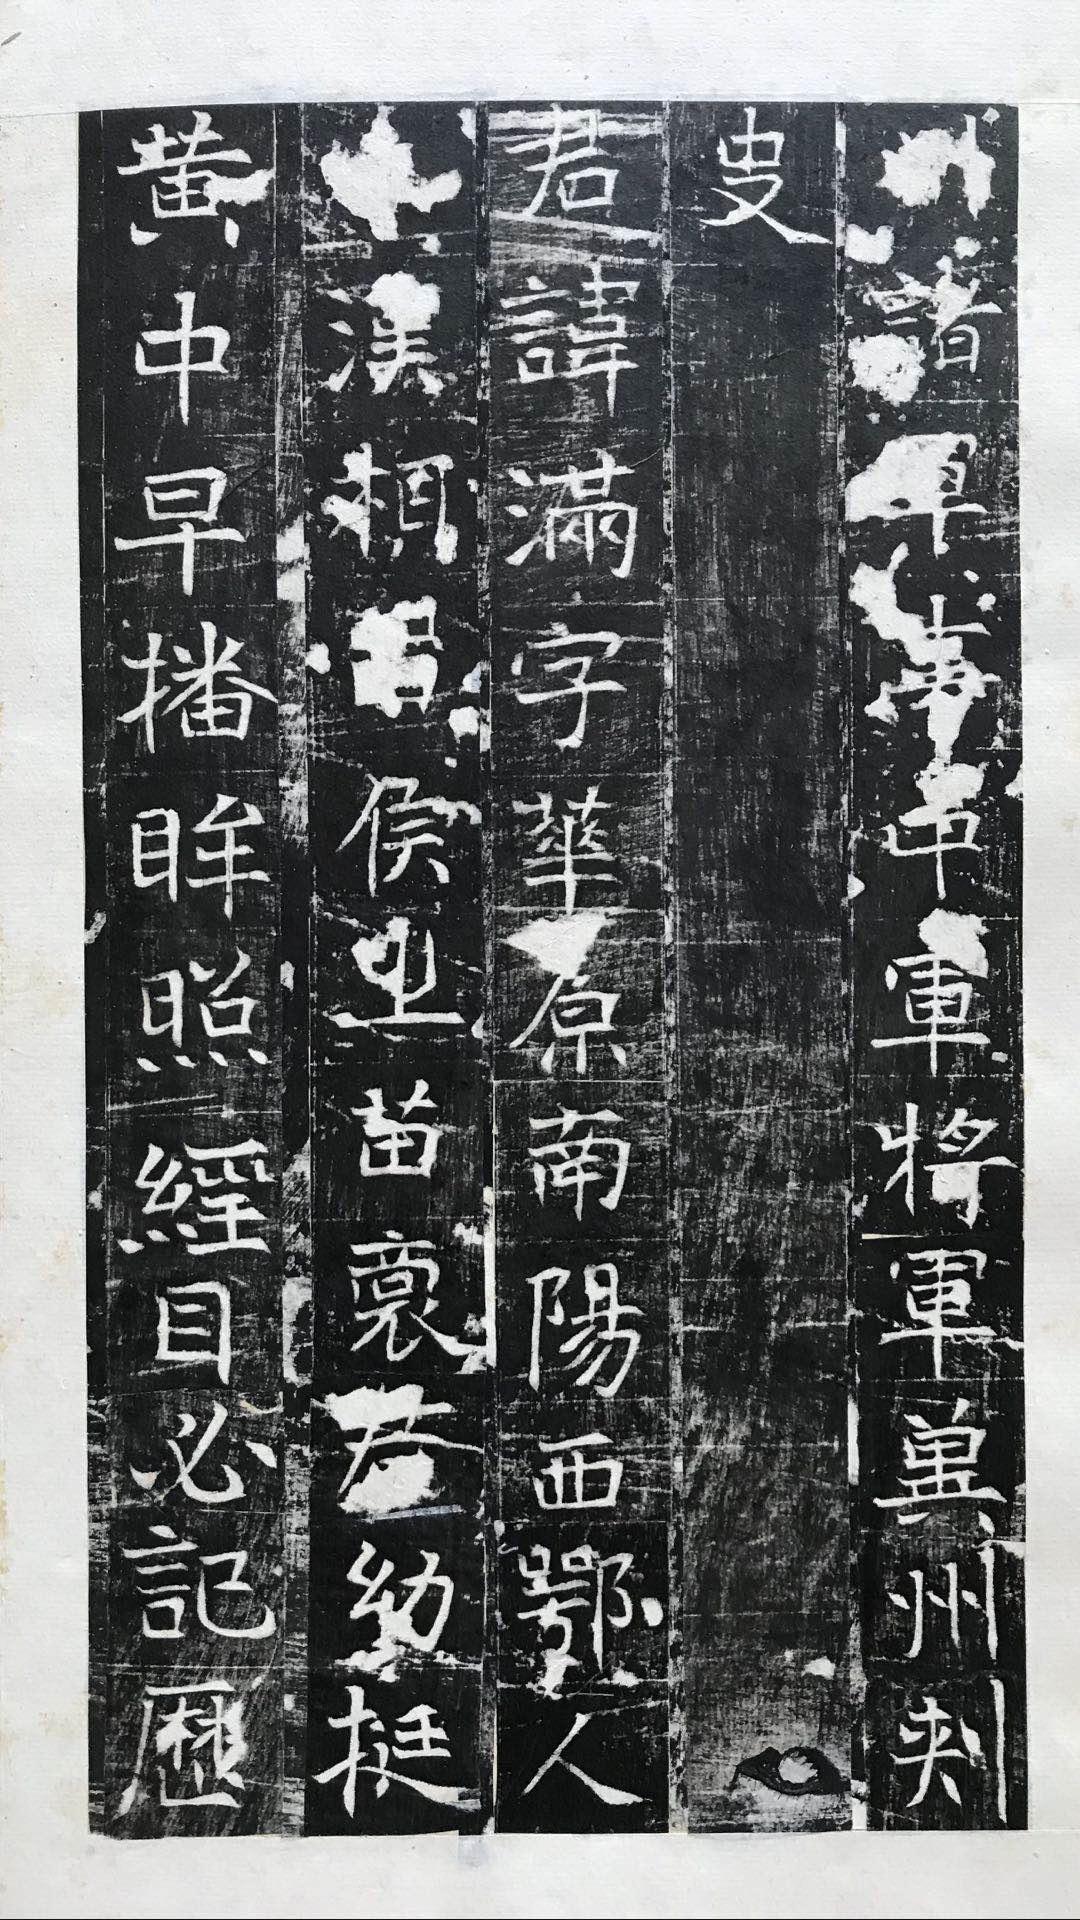 諸軍事中軍將軍冀州刺
史
君諱滿字華原南陽西鄂人
漢相留侯之苗裔君幼挺
黃中早播眸照經目必記歷